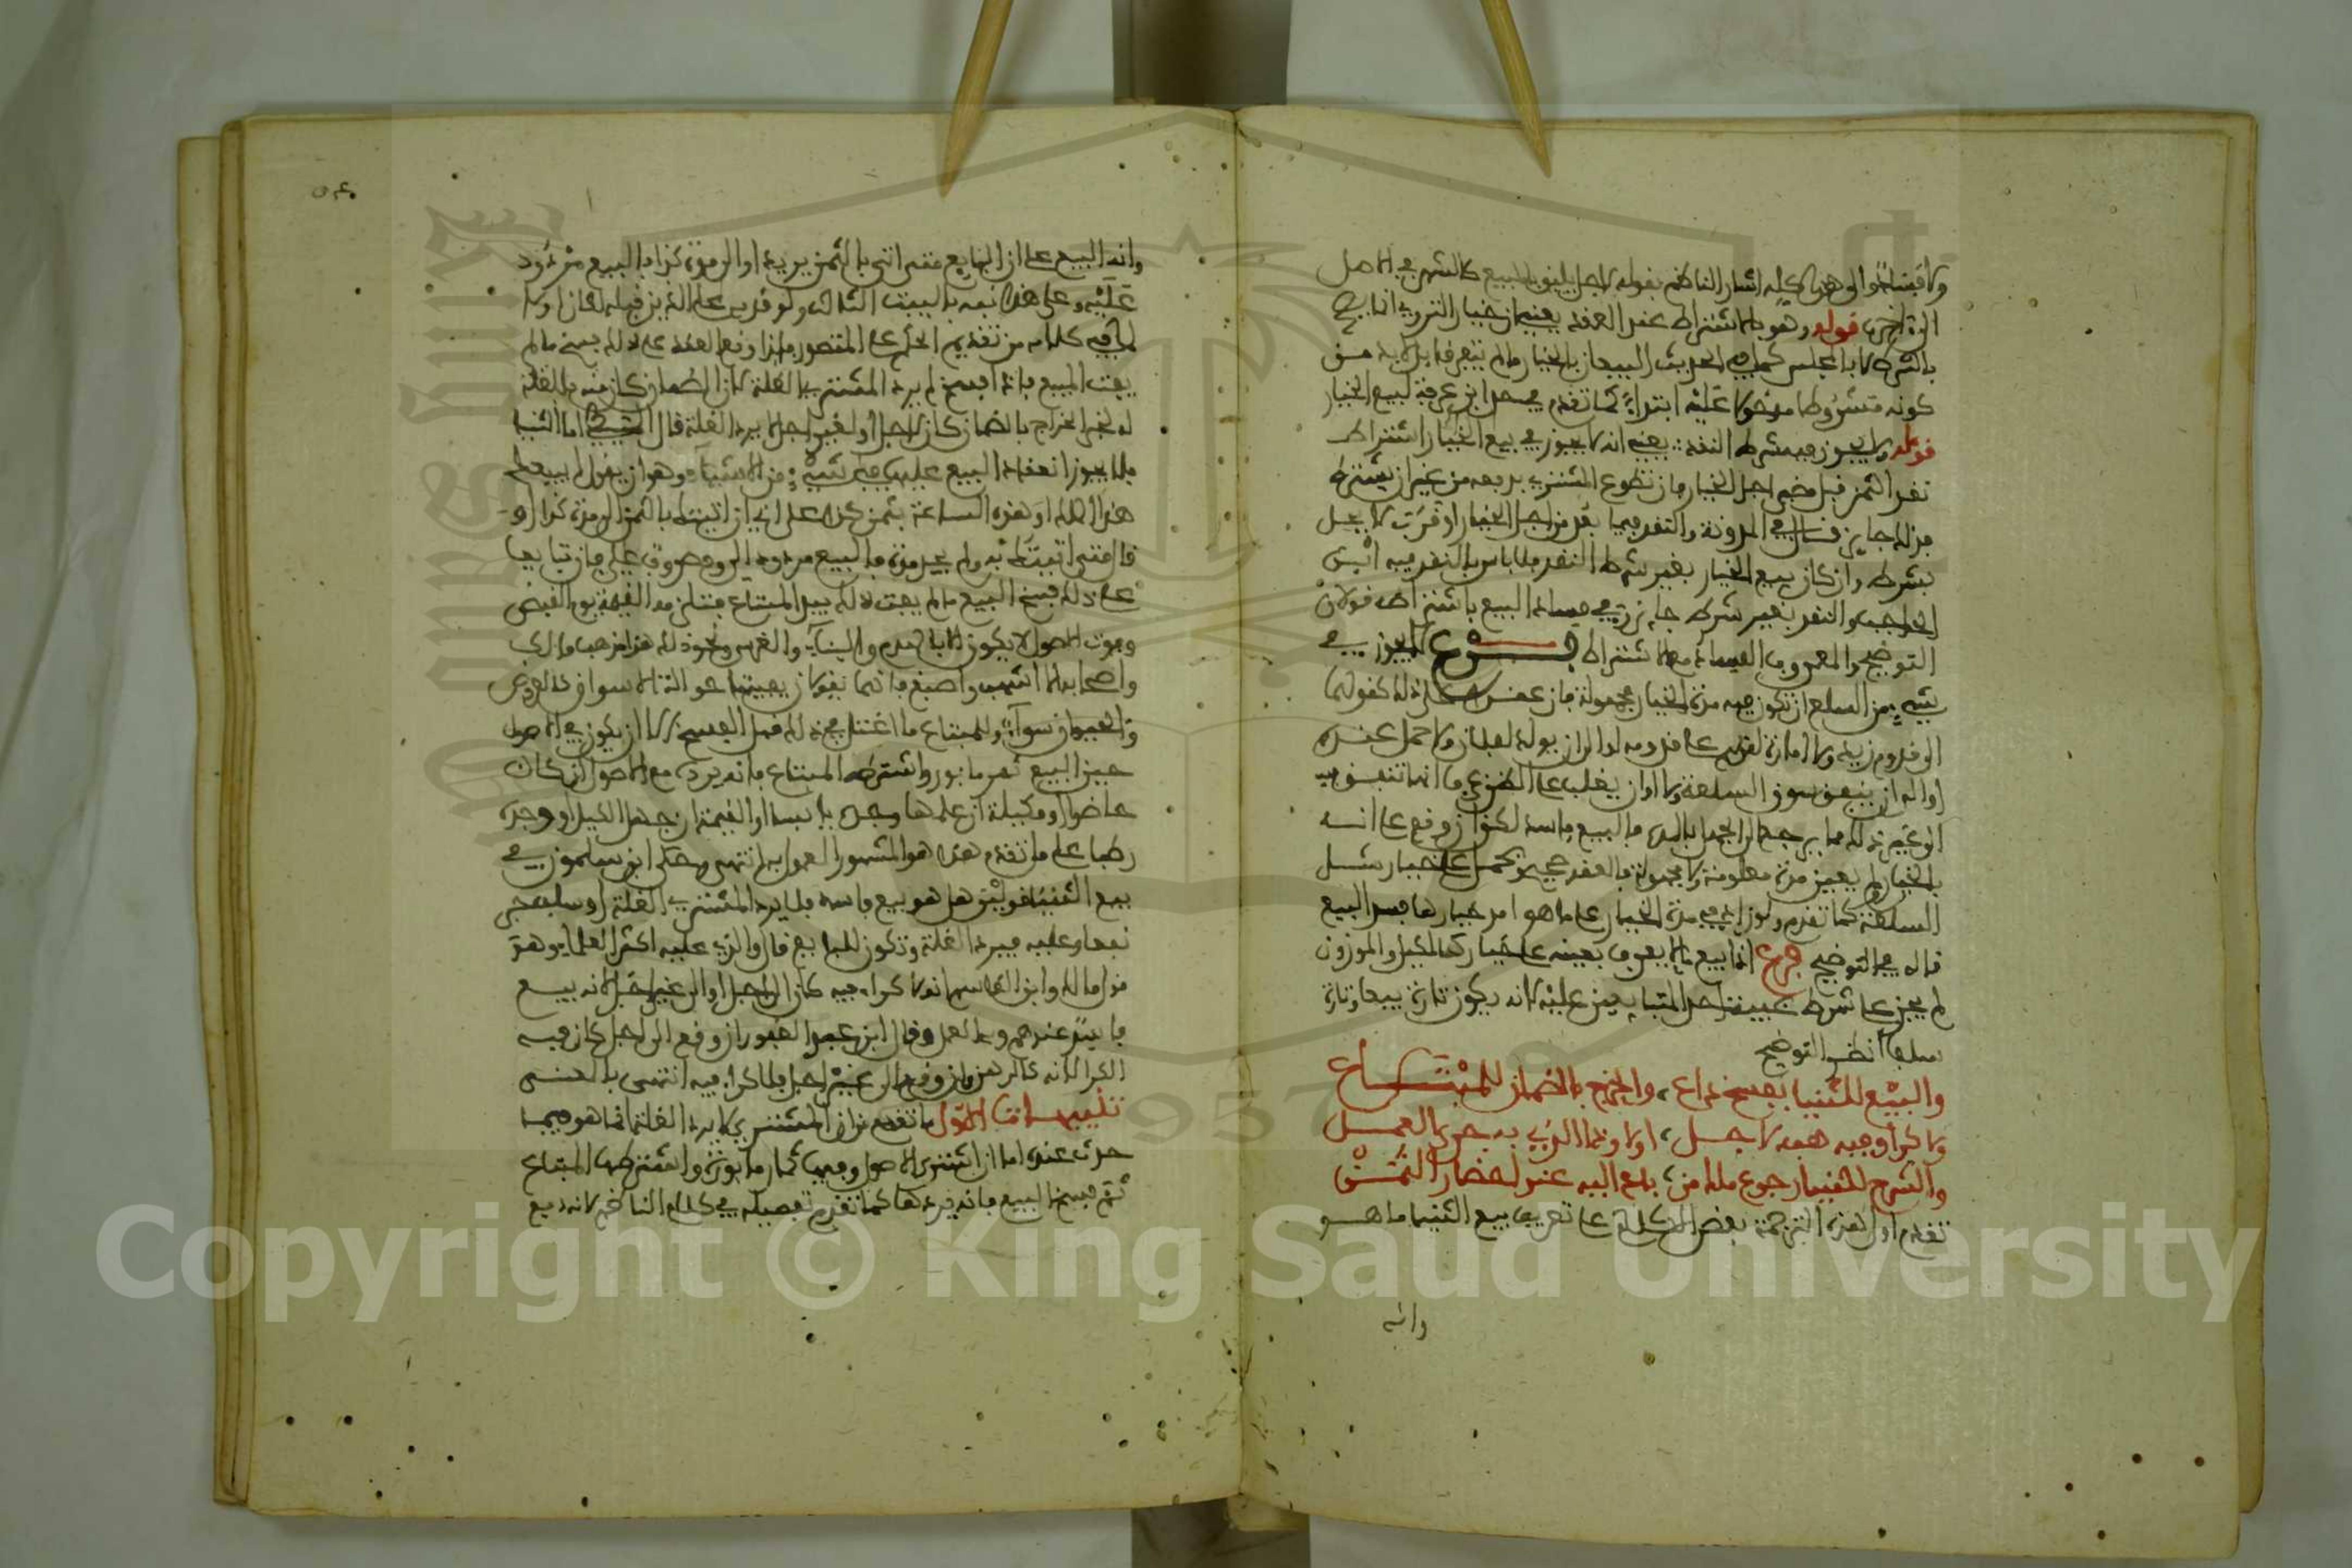 ولا قبضا لها والى هذا كله اشار الناظم بقوله لاجل يليق بالمبيع كالشهر في الاصل
الى اخره قوله وهو بالاشتراط عند العقد يعني ان خيار التروي انما يصح
بالشرط لا بالمجلس كما في الحديث البيعان بالخيار ما لم يتفرقا بل لابد من
كونه مشروطا مدخولا عليه ابتداء كما تقدم في حد ابن عرفة لبيع الخيار
قوله ولا يجوز فيه شرط النقد يعني انه لا يجوز في بيع الخيار اشتراط
نقد الثمن قبل مضي اجل الخيار فان تطوع المشتري بدفعه من غير ان يشترط
فذلك جايز قال في المدونة والنقد فيما بعد من اجل الخيار او قرب لا يحل
بشرط وان كان بيع الخيار بغير شرط النقد فلا باس بالنقد فيه ابن
الحاجب والنقد بغير شرط جايز وفي فساد البيع باشتراطه قولان
التوضيح والمعروف الفساد مع الاشتراط فرع لا يجوز في
شيء من السلع ان تكون فيه مدة الخيار مجهولة فان عقد على ذلك كقولهما
الى قدوم زيد ولا امارة لقدومه عندهما على قدومه او الى ان يولد لفلان ولا حمل عنده
او الى ان ينفق سوق السلعة ولا اوان يغلب على الظن عرفا انها تنفق فيه
الى غير ذلك مما يرجع الى الجهل بالمدة فالبيع فاسد لكن ان وقع على انه
بالخيار ولم يعين مدة معلومة ولا مجهولة فالعقد صحيح وتحمل على خيار مثل
السلعة كما تقدم ولو زاد في مدة الخيار على ما هو امد خيارها فسد البيع
قاله في التوضيح فرع اذا بيع ما لا يعرف بعينه على خيار كالمكيل والموزون
لم يجز على شرط غيبة احد المتبايعين عليه لانه يكون تارة بيعا وتارة
سلفا انظر التوضيح
والبيع للثنيا بفسخ داع، والخرج بالضمان للمبتاع
ولا كرا وفيه هبه لاجل، اولا وذا الذي به جرى العمل
والشرح للثنيا رجوع ملك من، باع اليه عند احضار الثمن
تقدم اول هذه الترجمة بعض الكلام على تعريف بيع الثنيا ما هو
وانه
٥٤٠
وانه البيع على ان البايع متى اتى بالثمن يريد او الى مدة كذا فالبيع مردود
عليه وعلى هذا نبه بالبيت الثالث ولو قدمه على الذين قبله لكان اولا
لما في كلامه من تقديم الحكم على التصور فاذا وقع العقد على ذلك فسخ ما لم
يفت المبيع فاذا فسخ لم يرد المشتري الغلة لان الضمان كان منه فالغلة
له لخبر الخراج بالضمان كان لاجل او لغير اجل لا يرد الغلة قال المتيطي اما الثنيا
فلا يجوز انعقاد البيع عليها في شيء من الاشياء وهو ان يقول له ابيعك
هذا الملك او هذه السلعة بثمن كذا على اني ان اتيتك بالثمن الى مدة كذا او
قال متى اتيتك به ولم يحد مدة فالبيع مردود الي ومصروف علي فان تبايعا
على ذلك فسخ البيع ما لم يفت ذلك بيد المبتاع فتلزمه القيمة يوم القبض
وفوت الاصول لا يكون الا بالهدم والبناء والغرس ونحو ذلك هذا مذهب مالك
واصحابه الا اشهب واصبغ فانهما يقولان يفيتها حوالة الاسواق كالعروض
والحيوان سواء وللمبتاع ما اغتل في ذلك قبل الفسخ الا ان يكون في الاصول
حين البيع ثمر مابور واشترطه المبتاع فانه يرده مع الاصول ان كان
حاضرا او مكيلته ان علمها وجده يابسا او القيمة ان جهل الكيل او وجده
رطبا على ما تقدم هذا هو المشهور المعمول به انتهى وحكى ابن سلمون في
بيع الثنيا قولين هل هو بيع فاسد فلا يرد المشتري الغلة او سلف جر
نفعا وعليه فيرد الغلة وتكون للبايع قال والذي عليه اكثر العلماء وهو
قول مالك وابن القاسم انه لا كراء فيه كان الى اجل او الى غير اجل لانه بيع
فاسد عندهم وبه العمل وقال ابن عبد الغفور ان وقع الى اجل كان فيه
الكرا لانه كالرهن وان وقع الى غير اجل فلا كراء فيه انتهى بالمعنى
تنبيهات الاول ما تقدم من ان المشتري لا يرد الغلة انما هو فيما
حدث عنده اما ان اشترى الاصول وفيها ثمار مابورة واشترطها المبتاع
ثم فسخ البيع فانه يردها كما تقدم تفصيله في كلام الناظم لانه مبيع